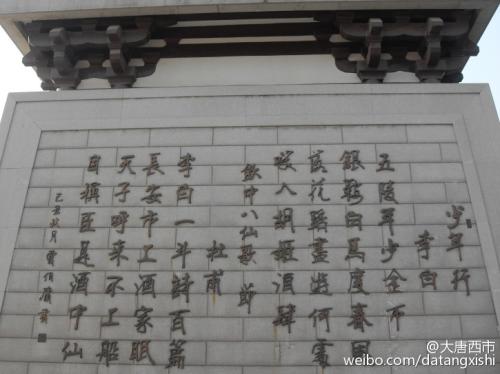 少年行
李白
五陵年少金市
銀鞍白馬度春風
落花踏盡遊何處
笑入胡姬酒肆
飲中八仙歌 節
杜甫
李白一斗詩百篇
長安市上酒家眠
天子呼來不上船
自稱臣是酒中仙
己丑秋月
@大唐西市
weibo.com/datangxishi